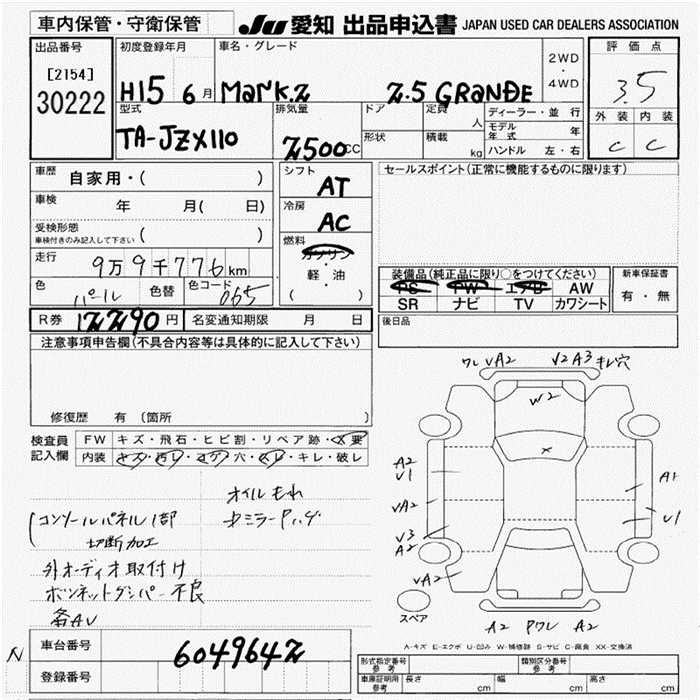 車内保管・守衛保管
JU 愛知 出品申込書 JAPAN USED CAR DEALERS ASSOCIATION
出品番号
[2154]
30222
初度登録年月
H15 6 月
車名・グレード
MARK.2 2.5 GRANDE
2WD
・
4WD
評価点
3.5
外装 内装
C C
型式
TA-JZX110
排気量
2500 CC
ドア
形状
定員 人
積載 kg
ディーラー・並行
モデル年式 年
ハンドル 左・右
車歴 自家用・( )
車検 年 月( 日)
受検形態
車検付きのみ記入して下さい ( )
走行 9万9千776km
色 パール 色替 色コード 065
シフト
AT
冷房
AC
燃料
ガソリン
・
軽・油
( )
セールスポイント(正常に機能するものに限ります)
装備品(純正品に限り○をつけてください)
PS PW エアB AW
SR ナビ TV カワシート
新車保証書
有・無
R券 12290円 名変通知期限 月 日
後日品
注意事項申告欄(不具合内容等は具体的に記入して下さい)
修復歴 有 (箇所 )
検査員
記入欄
FW キズ・飛石・ヒビ割・リペア跡・X要
内装 キズ・汚レ・コゲ・穴・スレ・キレ・破レ
オイルもれ
コンソールパネル1部
切断加工
外オーディオ取付け
ボンネットダンパー不良
各AU
ワレ VA2 V2 A3 キレ穴
W2
×
A2
V1
VA2
V3
A2
VA2
A1
U1
スペア
A2 Pワレ A2
A-キズ E-エクボ U-凹み W-補修跡 S-サビ C-腐食 XX-交換済
車台番号
6049642
登録番号
形式指定番号
参考
類別区分番号
参考
車庫証明用
参考
長さ cm 幅 cm 高さ cm